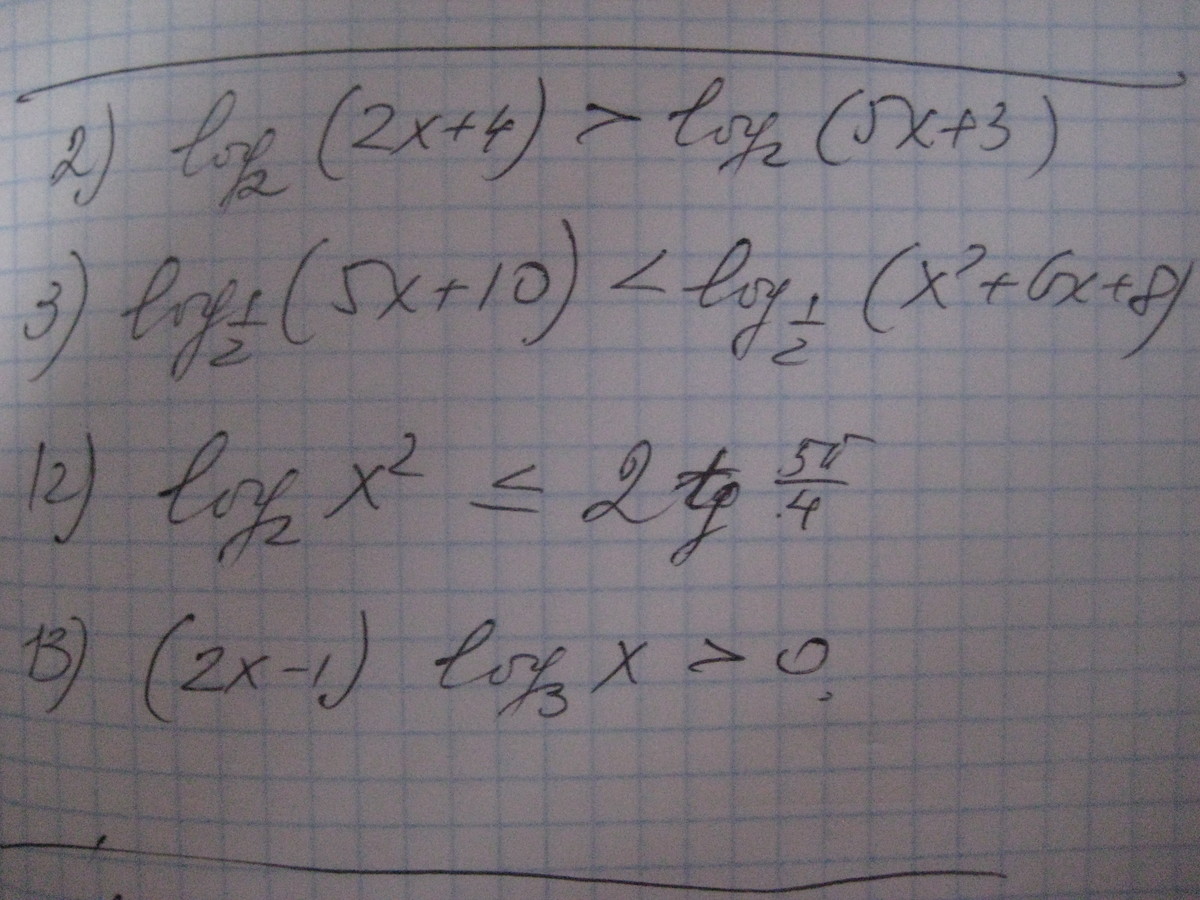 2) log₂ (2x+4) > log₂ (5x+3)
3) log_{1/2} (5x+10) < log_{1/2} (x²+6x+8)
12) log₂ x² ≤ 2 tg 5π/4
13) (2x-1) log₃ x > 0,